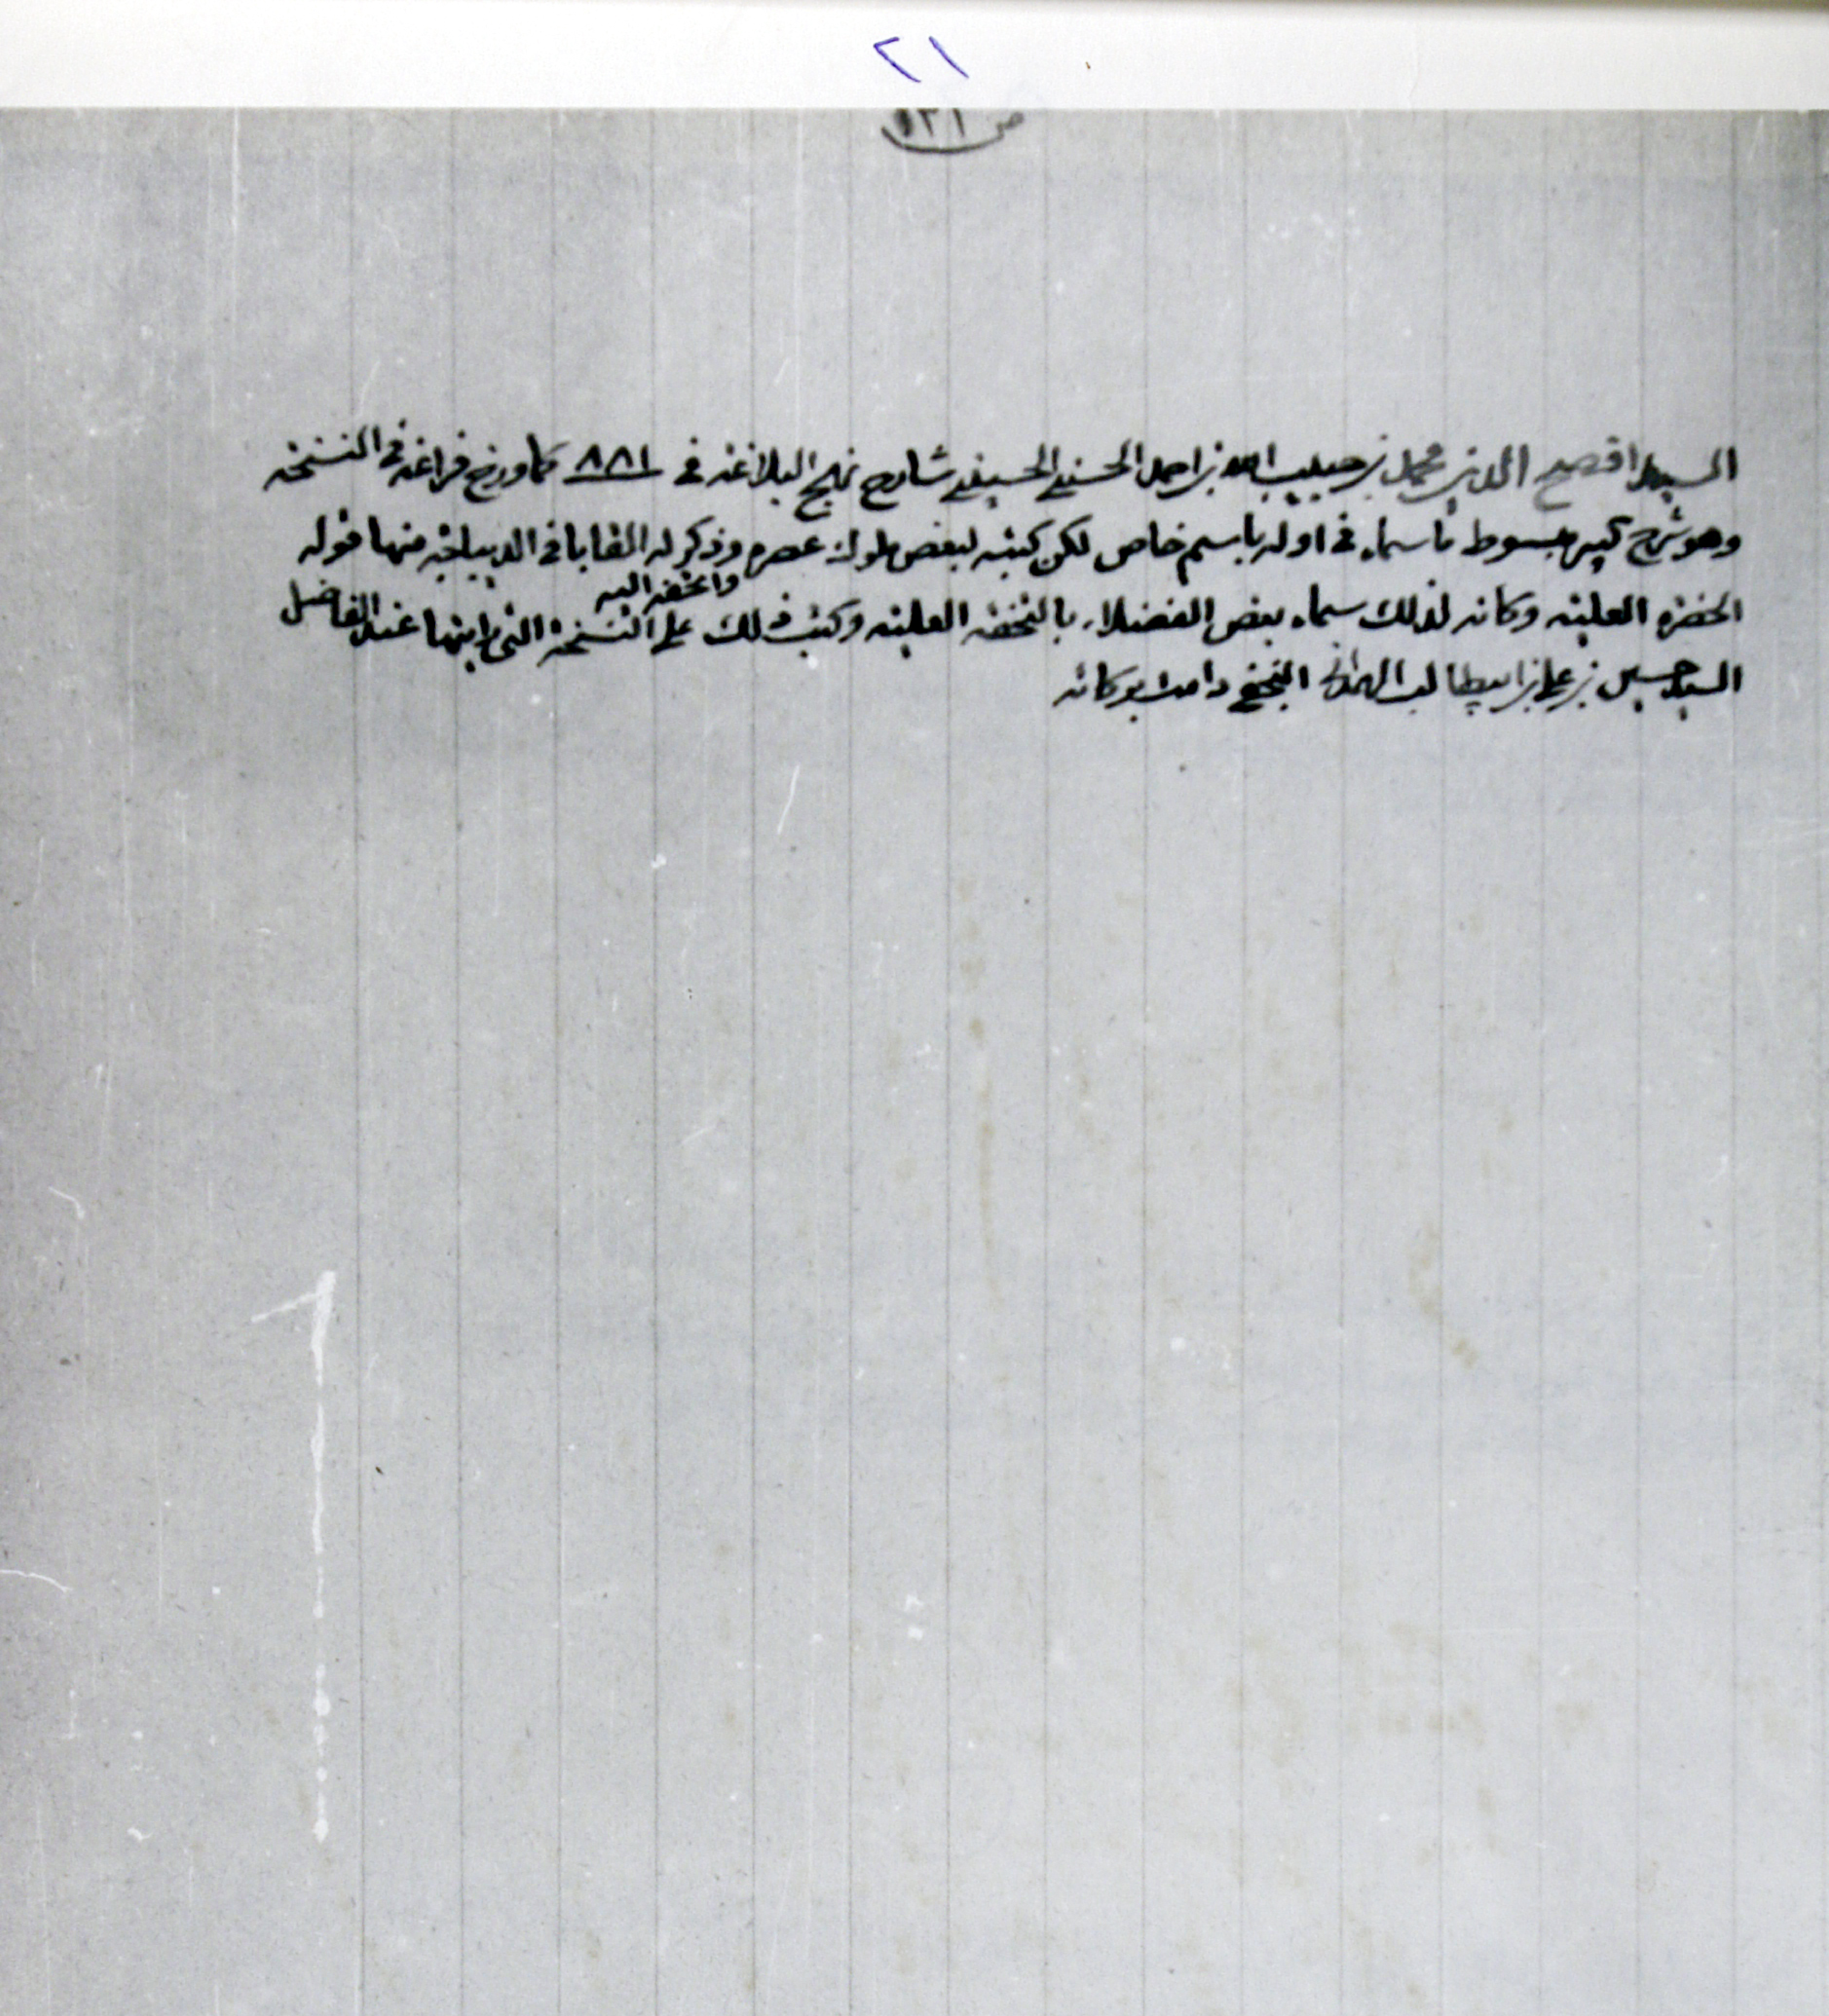 ٢١
ص ١٢١
السيد افصح الدين محمد بن حبيب الله بن احمد الحسني الحسيني شارح نهج البلاغة في ٨٨١ كما ورخ فراغه في النسخة
وهو شرح كبير مبسوط ما سماه في اوله باسم خاص لكن كتبه لبعض ملوك عصره وذكر له القابا في الديباجة منها قوله
واتحفه اليه
الحضرة العلية وكانه لذلك سماه بعض الفضلاء بالتحفة العلية وكتب ذلك على النسخة التي رايتها عند الفاضل
السيد حسين بن علي بن ابيطالب الهمداني النجفي دامت بركاته